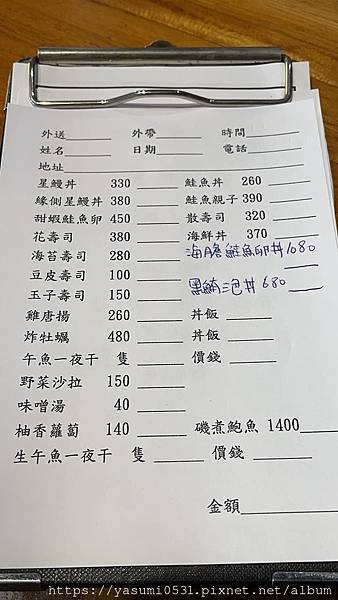 外送______ 外帶______ 時間______
姓名______ 日期______ 電話______
地址______
星鰻丼 330 ______ 鮭魚丼 260 ______
緣側星鰻丼 380 ______ 鮭魚親子 390 ______
甜蝦鮭魚卵 450 ______ 散壽司 320 ______
花壽司 380 ______ 海鮮丼 370 ______
海苔壽司 280 ______ 海膽鮭魚卵丼1080 ______
豆皮壽司 100 ______
玉子壽司 150 ______ 黑鮪三泡丼680 ______
雞唐揚 260 ______ 丼飯 ______
炸牡蠣 480 ______ 丼飯 ______
午魚一夜干 隻 ______ 價錢 ______
野菜沙拉 150 ______
味噌湯 40 ______
柚香蘿蔔 140 ______ 磯煮鮑魚 1400______
生午魚一夜干 隻 ______ 價錢 ______
金額______
https://yasumi0531.pixnet.net/album